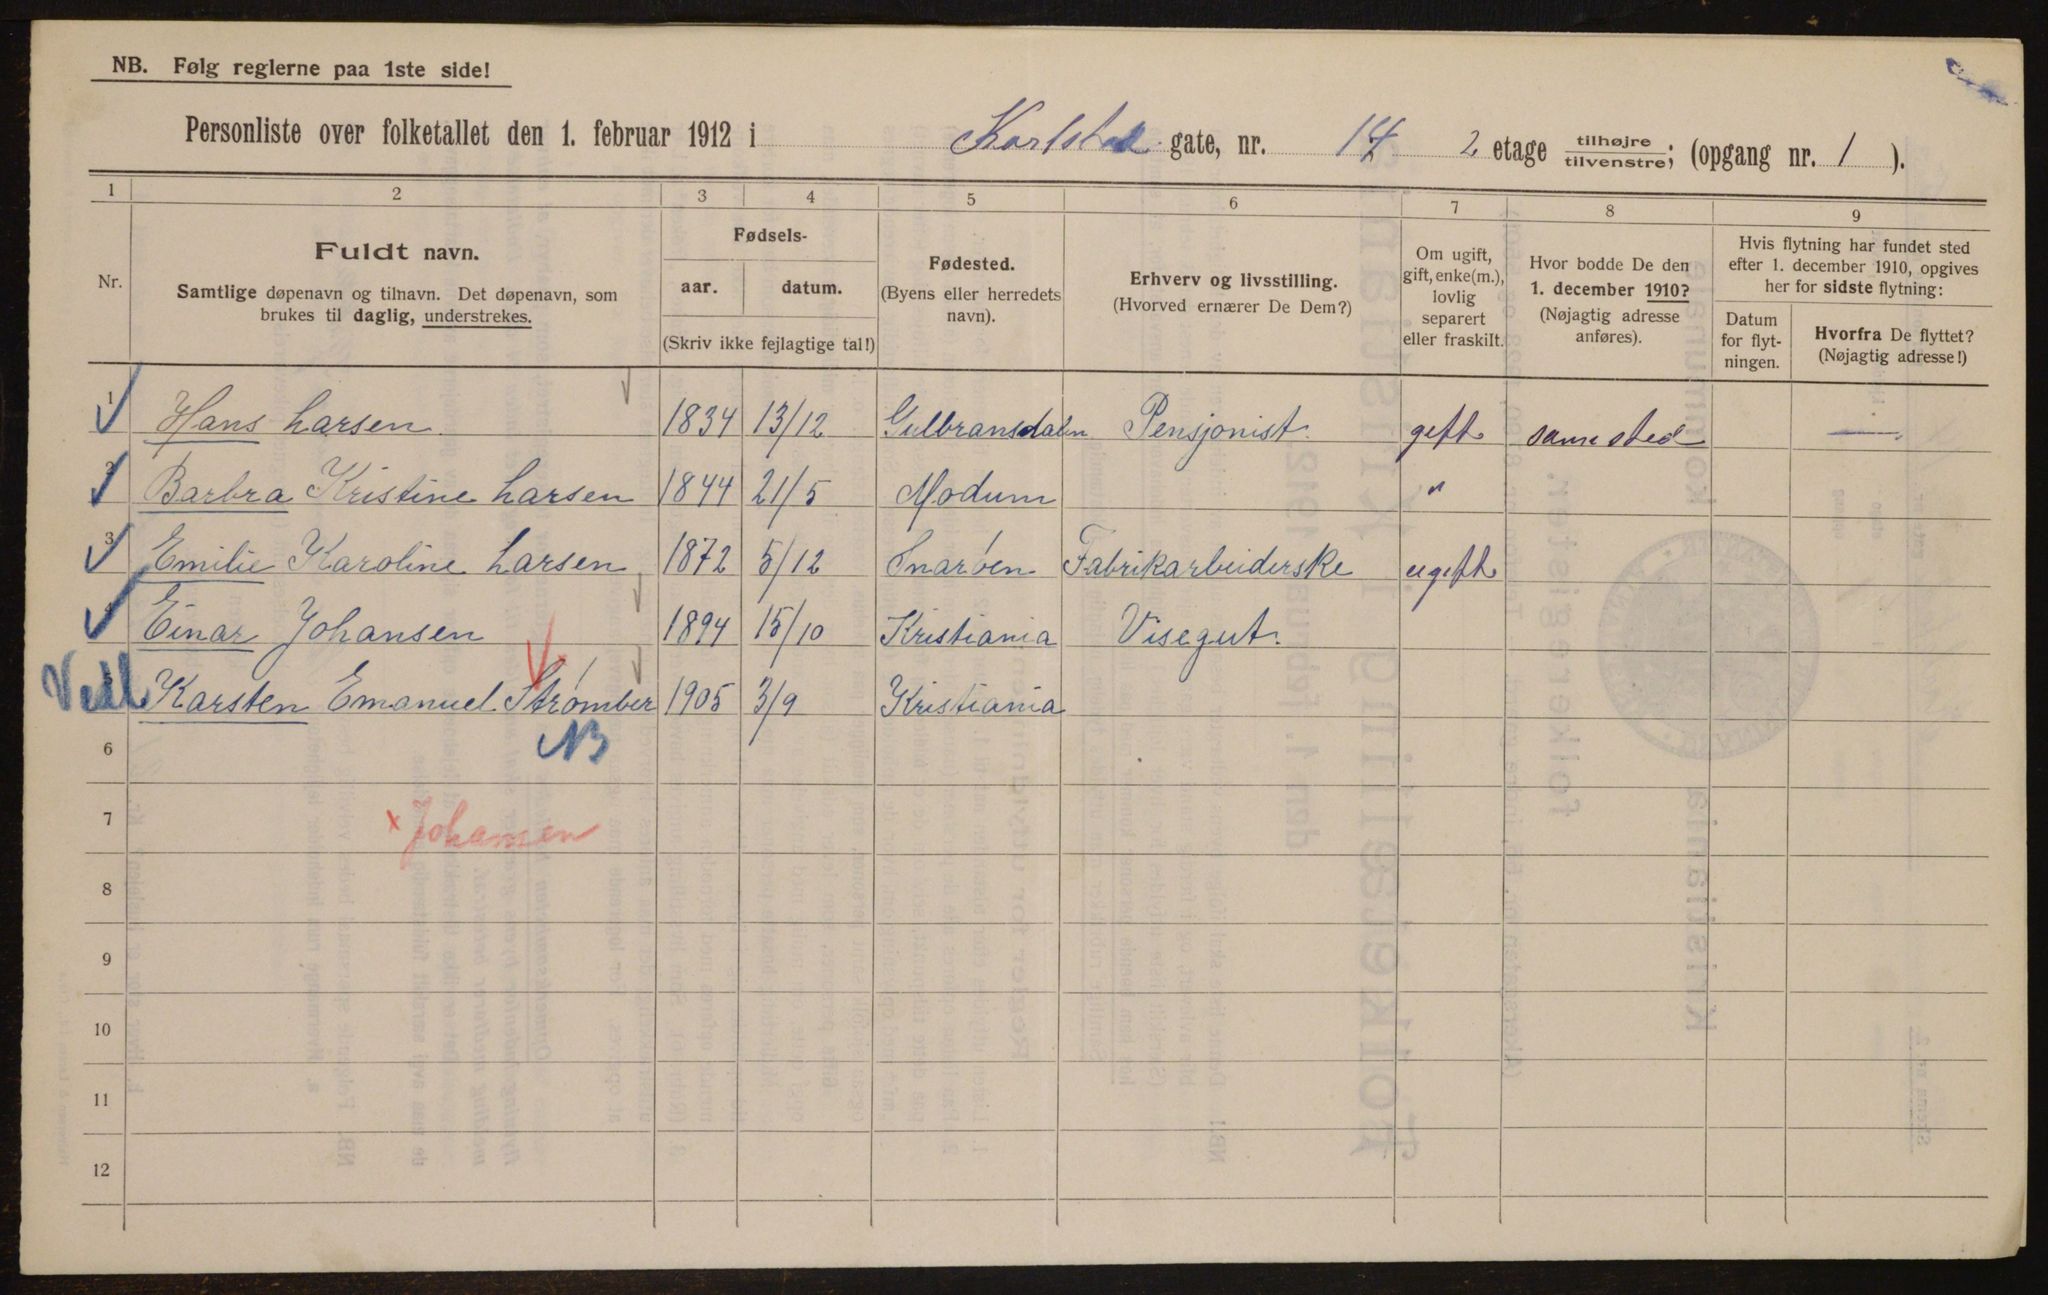 NB. Følg reglerne paa 1ste side!
Personliste over folketallet den 1. februar 1912 i Karlstad gate, nr. 14 2 etage tilhøjre tilvenstre; (opgang nr. 1 ).
1 2 3 4 5 6 7 8 9
Nr.
Fuldt navn.
Samtlige døpenavn og tilnavn. Det døpenavn, som
brukes til daglig, understrekes.
Fødsels-
aar. datum.
(Skriv ikke fejlagtige tal!)
Fødested.
(Byens eller herredets
navn).
Erhverv og livsstilling.
(Hvorved ernærer De Dem?)
Om ugift,
gift, enke(m.),
lovlig
separert
eller fraskilt.
Hvor bodde De den
1. december 1910?
(Nøjagtig adresse
anføres).
Hvis flytning har fundet sted
efter 1. december 1910, opgives
her for sidste flytning:
Datum
for flyt-
ningen.
Hvorfra De flyttet?
(Nøjagtig adresse!)
1 Hans Larsen 1834 13/12 Gulbransdalen Pensjonist. gift samested —
2 Barbra Kristine Larsen 1844 21/5 Modum "
3 Emilie Karoline Larsen 1872 5/12 Snarøen Fabrikarbeiderske ugift
Einar Johansen 1894 15/10 Kristiania Visegut.
Karsten Emanuel Strømber 1905 3/9 Kristiania
6 NB
7 × Johansen
8
9
10
11
12